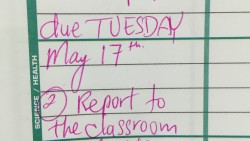 due TUESDAY
May 17th.
SCIENCE / HEALTH
② Report to
the classroom